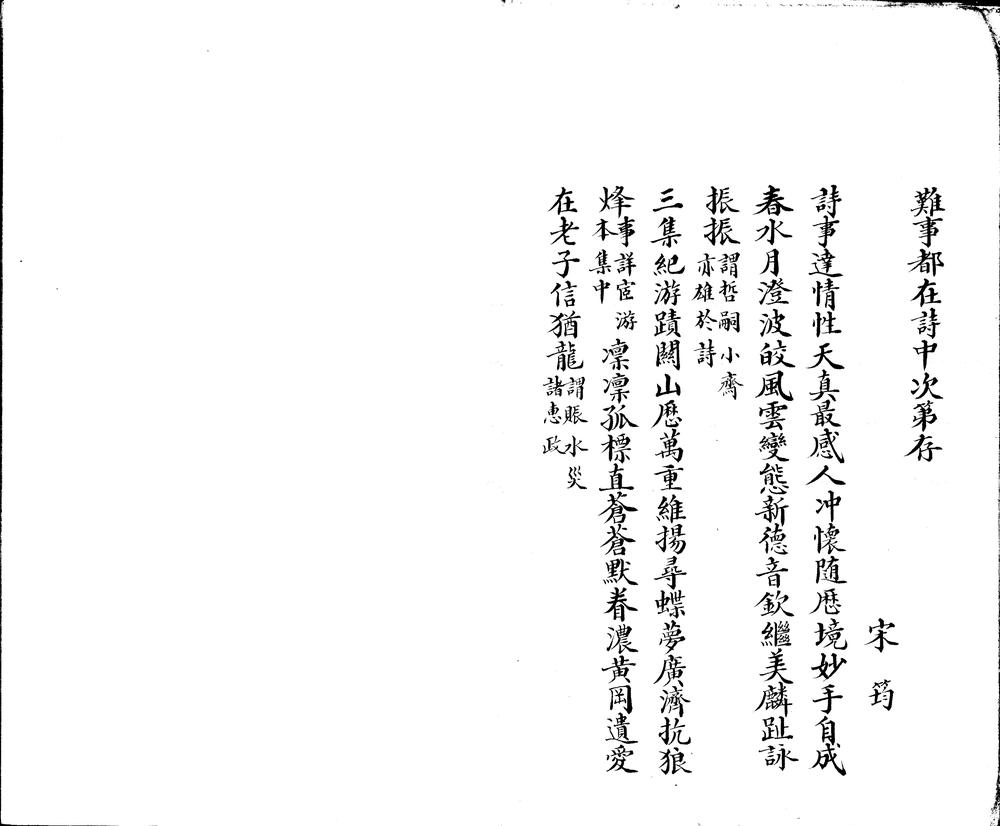 難事都在詩中次第存
宋筠
詩事達情性天真最感人冲懷随厯境妙手自成
春水月澄波皎風雲變態新德音欽繼美麟趾詠
振振謂哲嗣小齋亦雄於詩
三集紀游蹟關山厯萬重維揚尋蝶夢廣濟抗狼
烽事詳宦游本集中凛凛孤標直蒼蒼默眷濃黃岡遺愛
在老子信猶龍謂賑水災諸惠政